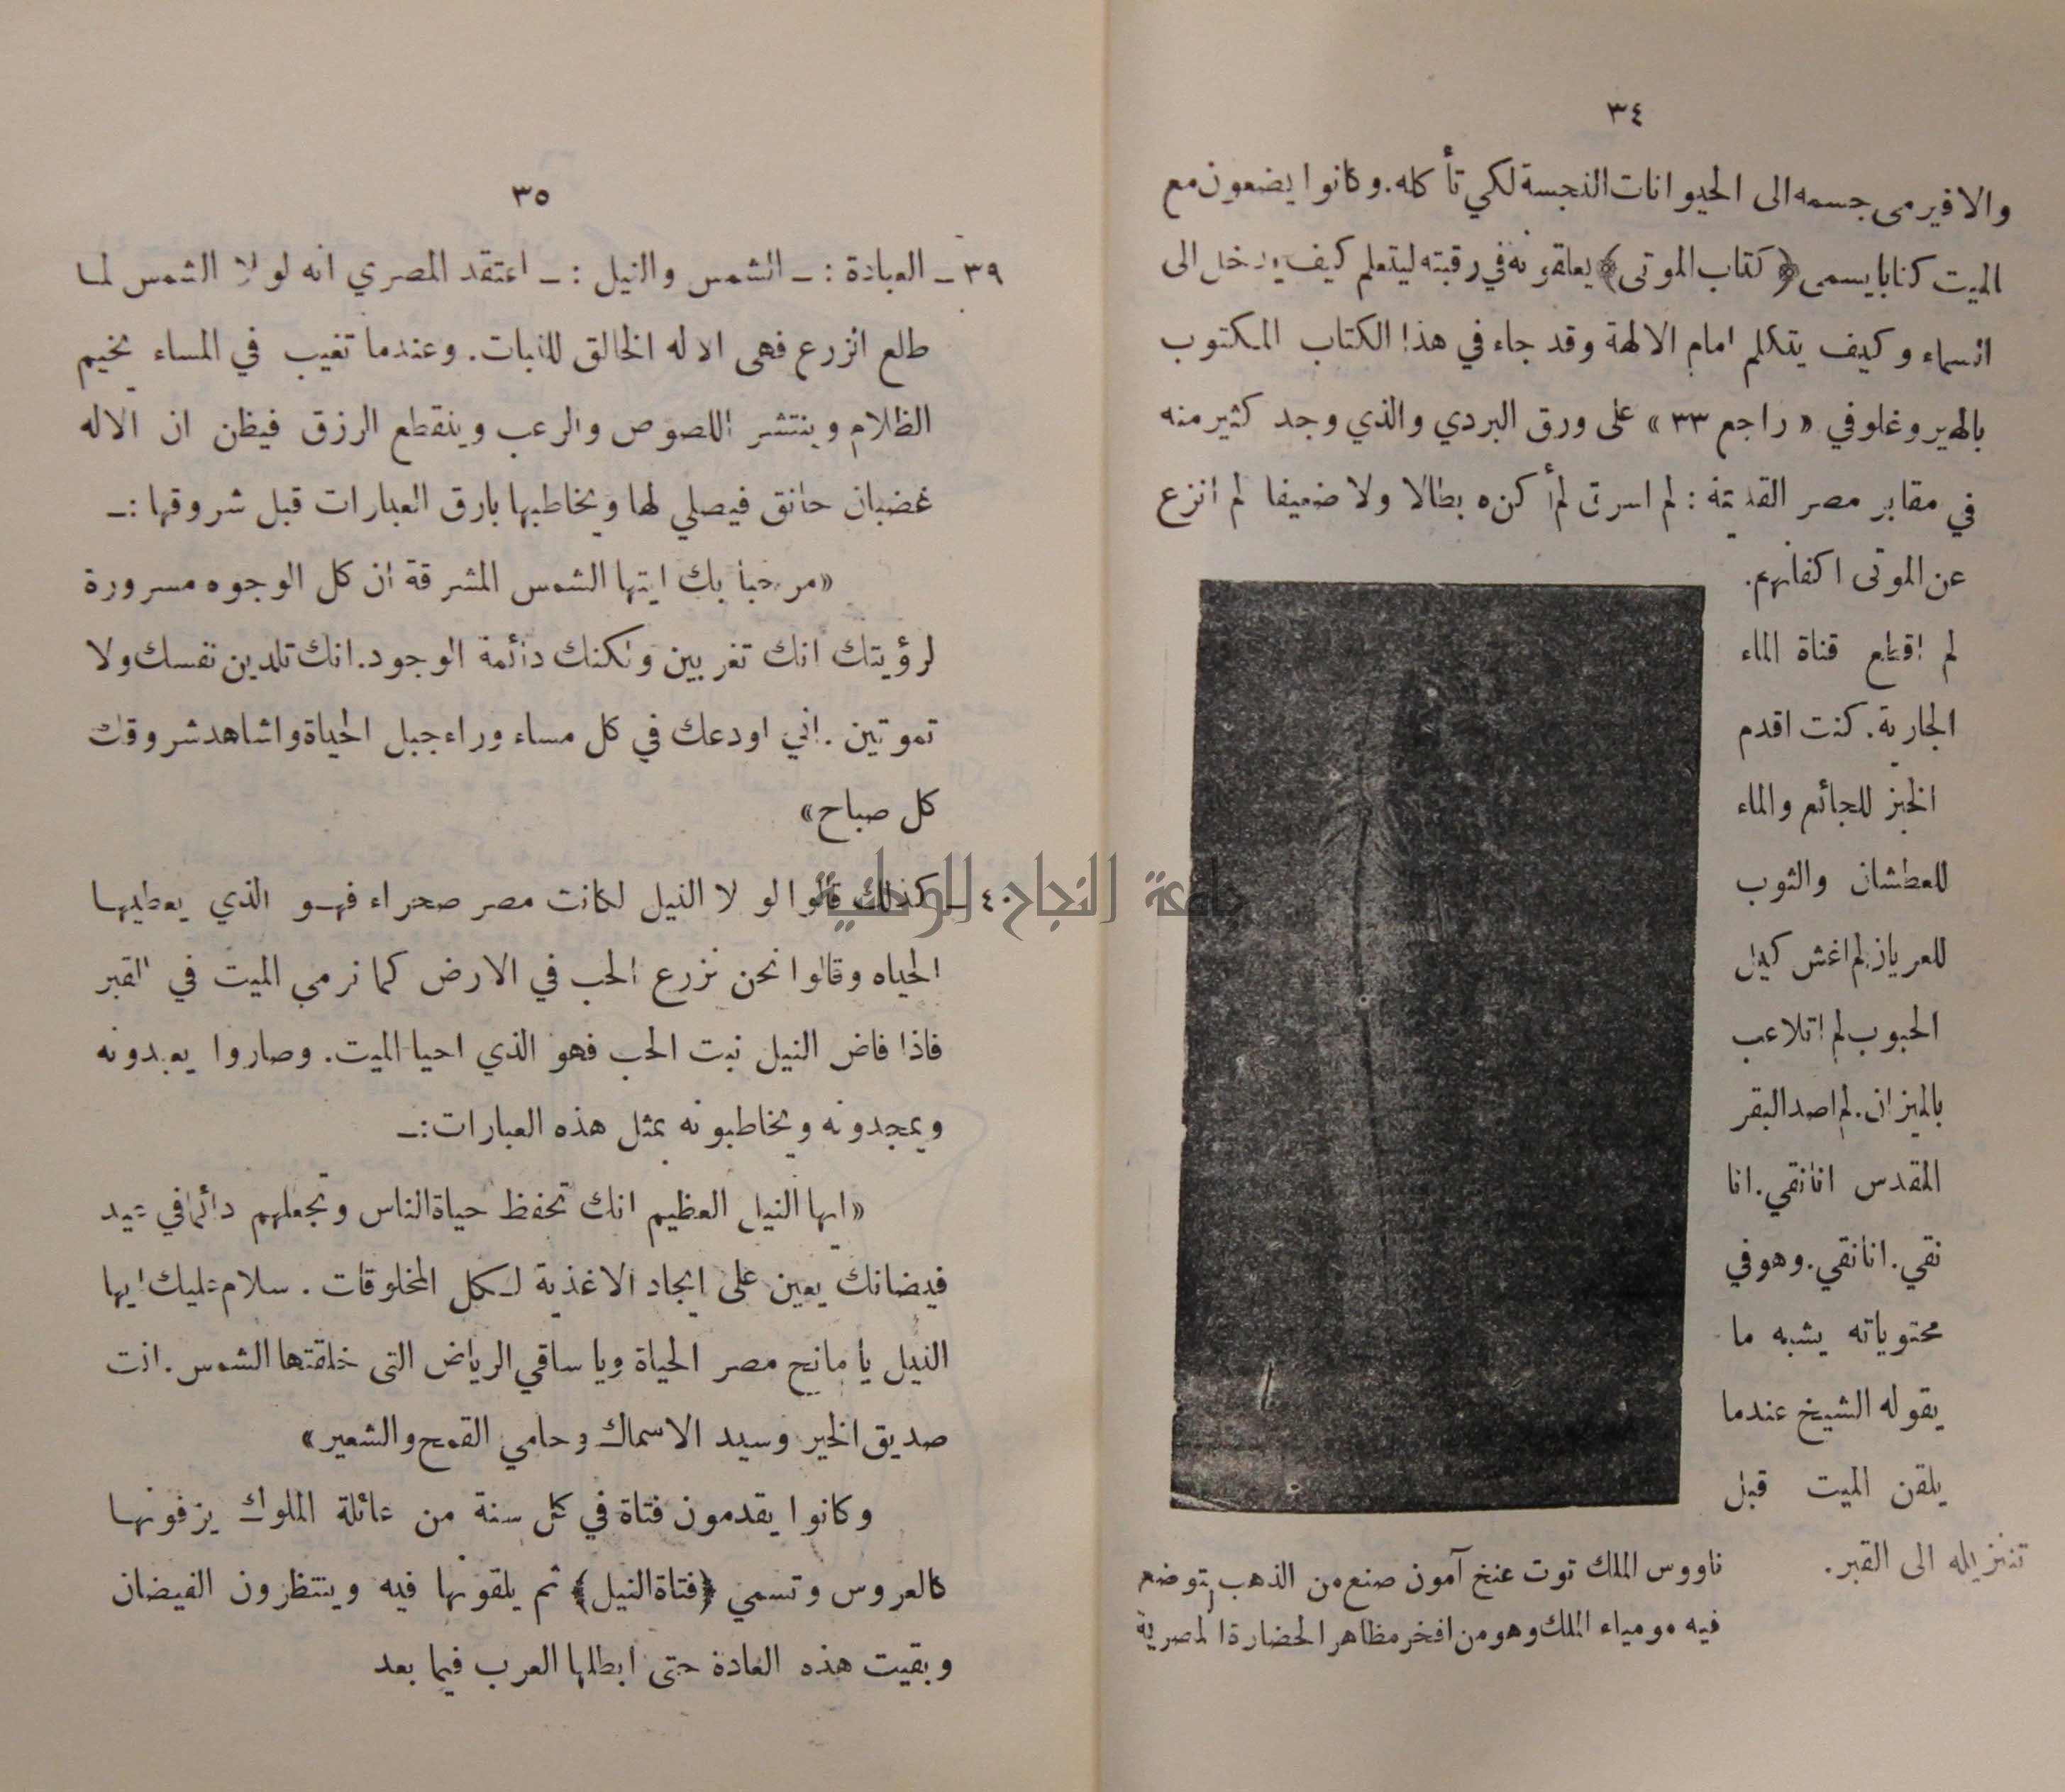 ٣٤
والا فيرمى جسمه الى الحيوانات النجسة لكي تأكله. وكانوا يضعون مع
الميت كتابا يسمى ﴿كتاب الموتى﴾ يعلقونه في رقبته ليتعلم كيف يدخل الى
السماء وكيف يتكلم امام الالهة وقد جاء في هذا الكتاب المكتوب
بالهيروغلوفي « راجع ٣٣ » على ورق البردي والذي وجد كثير منه
في مقابر مصر القديمة : لم اسرق لم أكن بطالا ولا ضعيفا لم انزع
عن الموتى اكفانهم.
لم اقطع قناة الماء
الجارية. كنت اقدم
الخبز للجائع والماء
للعطشان والثوب
للعريان لم اغش كيل
الحبوب لم اتلاعب
بالميزان. لم اصد البقر
المقدس انا نقي. انا
نقي. انا نقي. وهو في
محتوياته يشبه ما
يقوله الشيخ عندما
يلقن الميت قبل
تنزيله الى القبر.
ناووس الملك توت عنخ آمون صنع من الذهب لتوضع
فيه مومياء الملك وهو من افخر مظاهر الحضارة المصرية
٣٥
٣٩ ـ العبادة : ـ الشمس والنيل : ـ اعتقد المصري انه لولا الشمس لما
طلع الزرع فهي الاله الخالق للنبات. وعندما تغيب في المساء يخيم
الظلام وينتشر اللصوص والرعب وينقطع الرزق فيظن ان الاله
غضبان حانق فيصلي لها ويخاطبها بارق العبارات قبل شروقها : ـ
«مرحبا بك ايتها الشمس المشرقة ان كل الوجوه مسرورة
لرؤيتك انك تغربين ولكنك دائمة الوجود. انك تلدين نفسك ولا
تموتين . اني اودعك في كل مساء وراء جبل الحياة واشاهد شروقك
كل صباح»
٤٠ ـ كذلك قالوا لو لا النيل لكانت مصر صحراء فهو الذي يعطيها
الحياه وقالوا نحن نزرع الحب في الارض كما نرمي الميت في القبر
فاذا فاض النيل نبت الحب فهو الذي احيا الميت. وصاروا يعبدونه
ويمجدونه ويخاطبونه بمثل هذه العبارات: ـ
«ايها النيل العظيم انك تحفظ حياة الناس وتجعلهم دائما في عيد
فيضانك يعين على ايجاد الاغذية لكل المخلوقات . سلام عليك ايها
النيل يا مانح مصر الحياة ويا ساقي الرياض التى خلقتها الشمس . انت
صديق الخير وسيد الاسماك وحامي القمح والشعير»
وكانوا يقدمون فتاة في كل سنة من عائلة الملوك يزفونها
كالعروس وتسمي ﴿فتاة النيل﴾ ثم يلقونها فيه وينتظرون الفيضان
وبقيت هذه العادة حتى ابطلها العرب فيما بعد
جامعة النجاح الوطنية